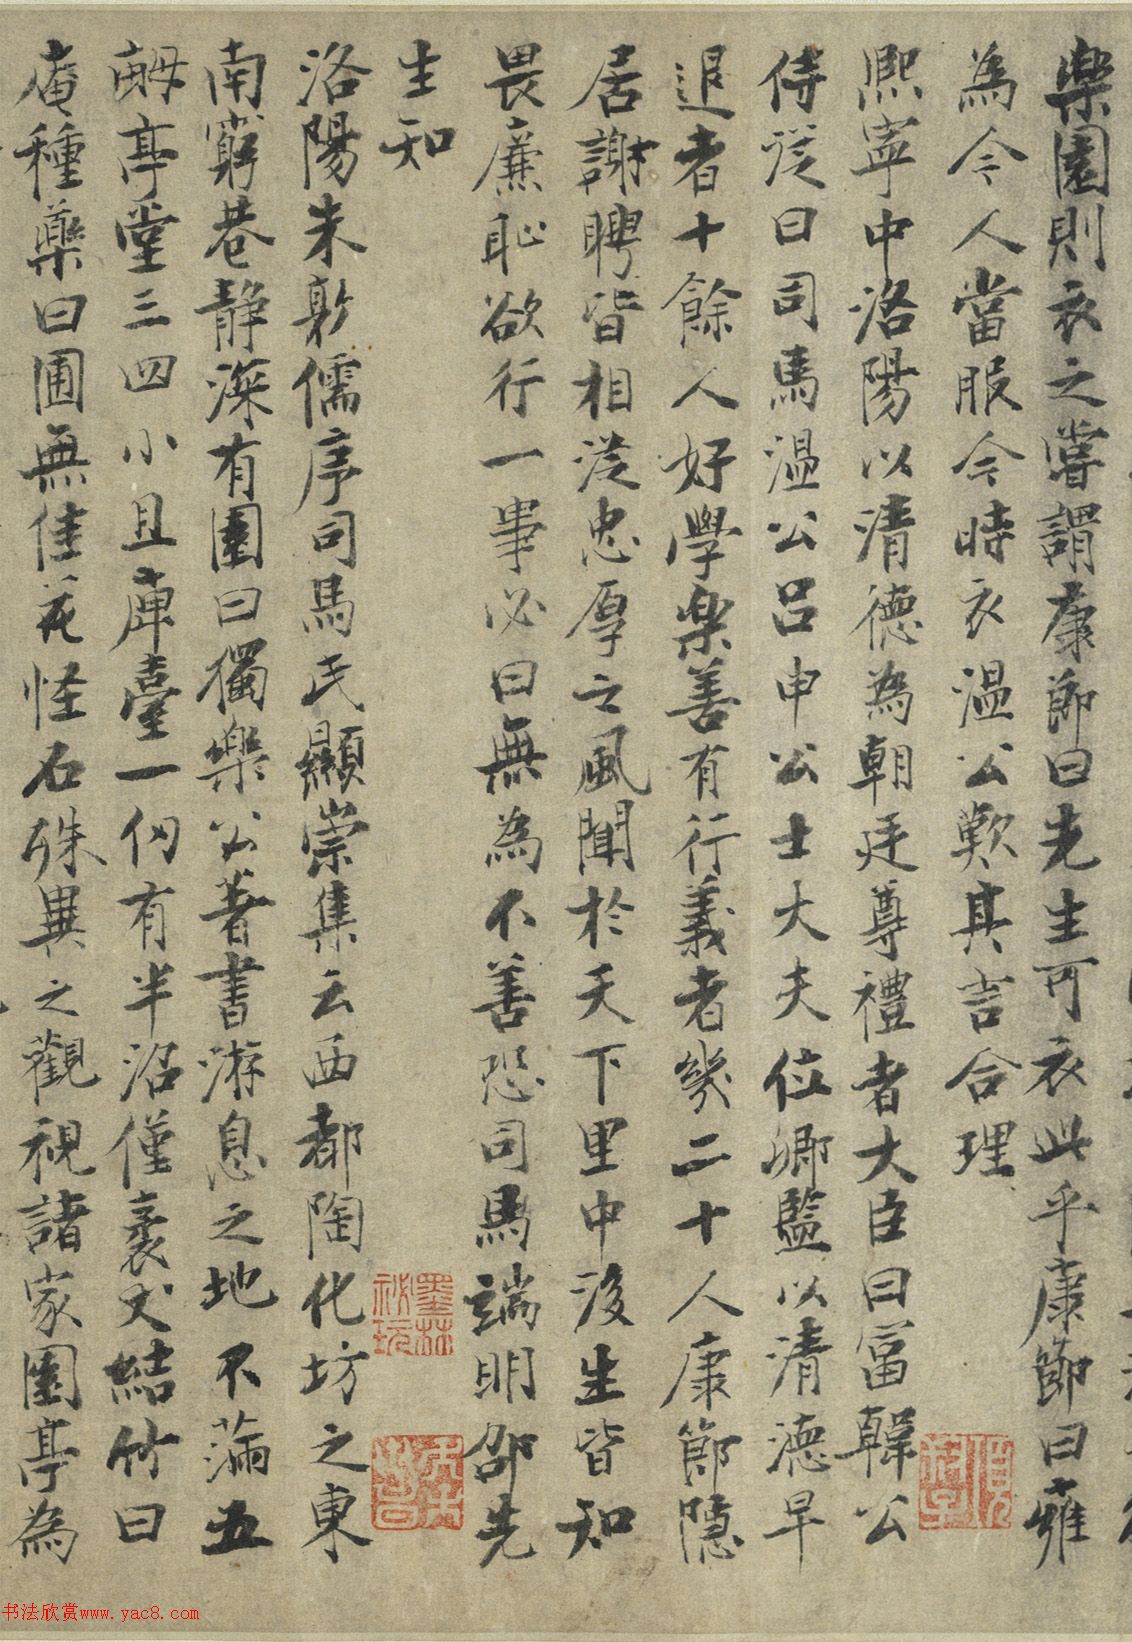 樂園則衣之嘗謂康節曰先生可衣此乎康節曰雍
為今人當服今時衣溫公歎其言合理
熙寧中洛陽以清德為朝廷尊禮者大臣曰富韓公
侍從曰司馬溫公呂申公士大夫位卿監以清德早
退者十餘人好學樂善有行義者幾二十人康節隱
居謝聘皆相從忠厚之風聞於天下里中後生皆知
畏廉恥欲行一事必曰無為不善恐司馬端明邵先
生知
洛陽朱敦儒序司馬氏顯崇集云西都陶化坊之東
南窮巷靜深有園曰獨樂公著書游息之地不滿五
畝亭堂三四小且庳臺一仞有半沼僅袤丈結竹曰
庵種藥曰圃無佳花怪石殊異之觀視諸家園亭為
墨林祕玩
书法欣赏www.yac8.com